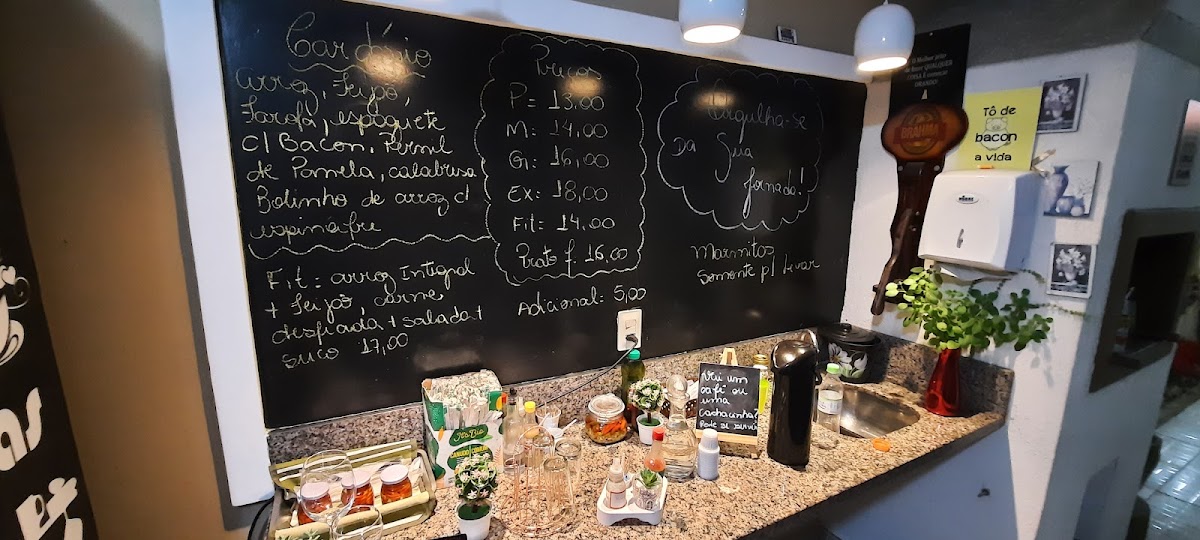 Cardápio
Arroz, Feijão,
Farofa, espaguete
c/ Bacon, Pernil
de Panela, calabresa
Bolinho de arroz c/
espinafre
Fit: arroz Integral
+ feijão, carne
desfiada + salada +
suco 17,00
Preços
P = 13,00
M: 14,00
G: 16,00
EX: 18,00
Fit: 14,00
Prato f. 16,00
Adicional: 5,00
Orgulha-se
Da Sua
Jornada!
Marmitas
Somente p/ levar
BRAHMA
Tô de
bacon
a vida
Vai um
café ou
uma
cachacinha?
Pode se servir
as